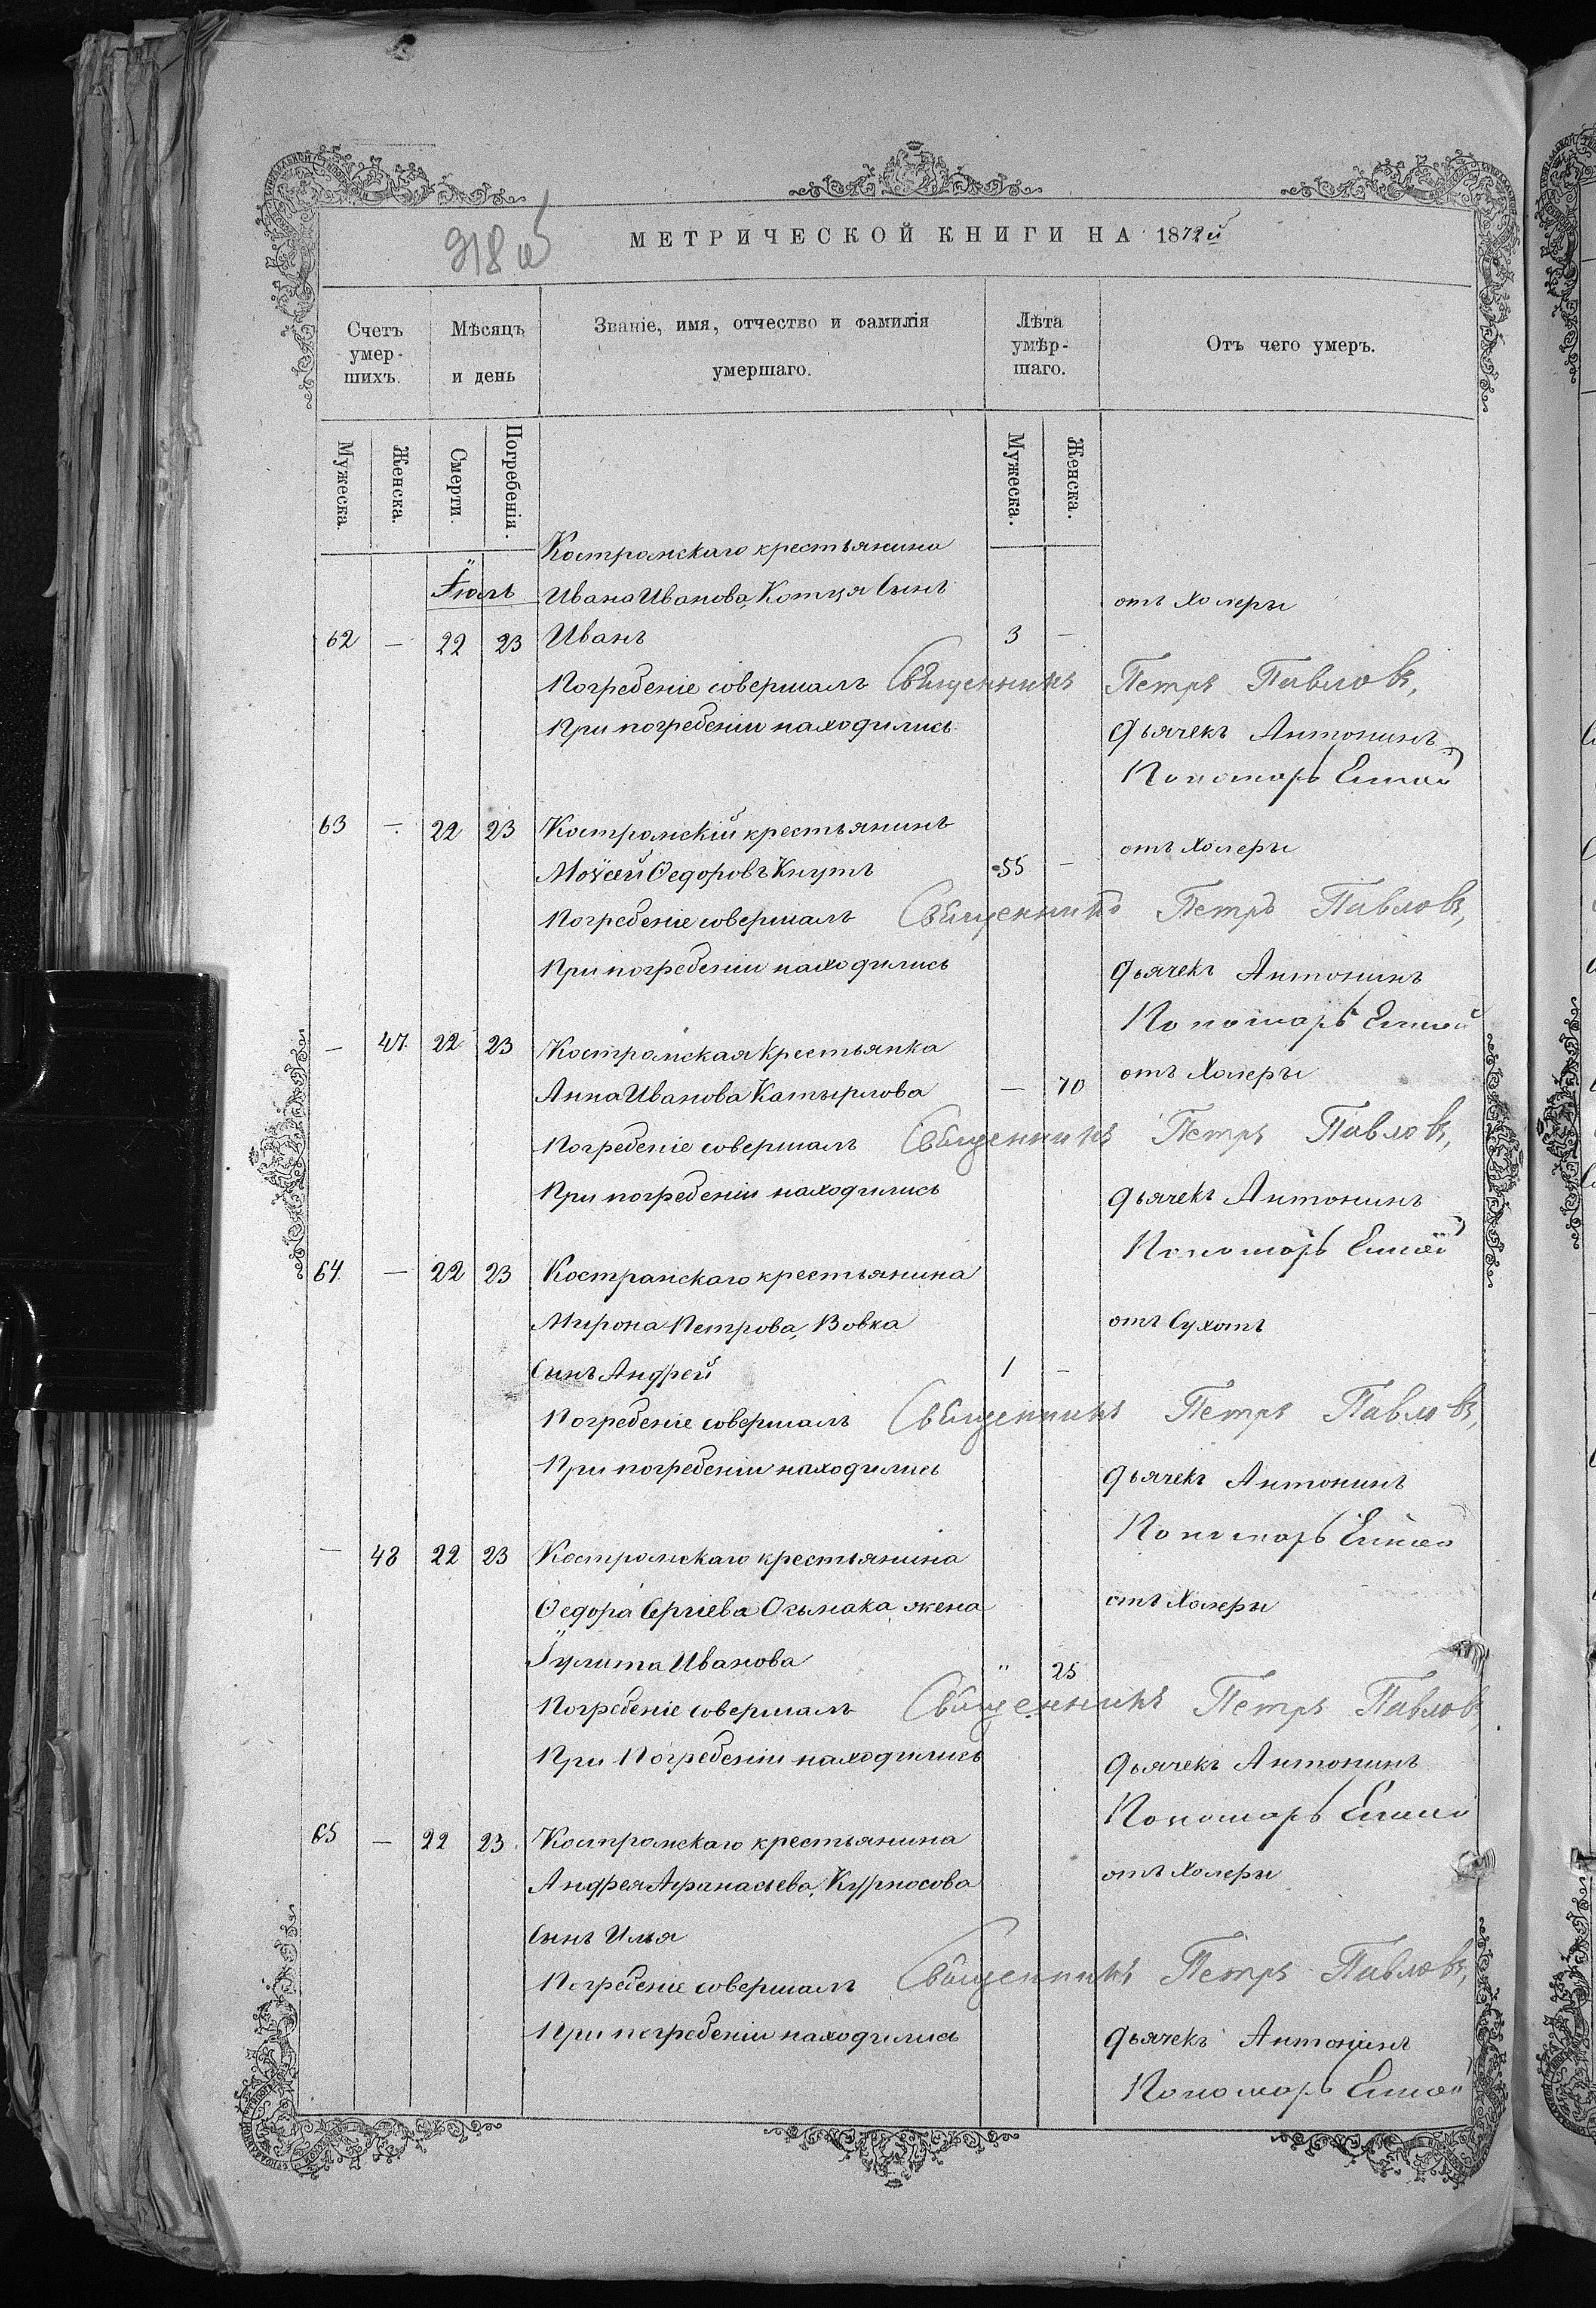 918 об
МЕТРИЧЕСКОЙ КНИГИ НА 1872й
Счетъ умер-шихъ.
Мѣсяцъ и день
Званіе, имя, отчество и фамилія умершаго.
Лѣта умѣр-шаго.
Отъ чего умеръ.
Мужеска. Женска. Смерти. Погребенія. Мужеска. Женска.
Костромскаго крестьянина
Іюль Ивана Иванова, Котця Сынъ отъ Холеры
62 — 22 23 Иванъ 3 —
Погребеніе совершалъ Священникъ Петръ Павловъ,
При погребеніи находились Дьячекъ Антонинъ
Пономарь
63 — 22 23 Костромскій крестьянинъ отъ Холеры
Моѵсей Ѳедоровъ Кнутъ 55 —
Погребеніе совершалъ Священникъ Петръ Павловъ,
При погребеніи находились Дьячекъ Антонинъ
Пономарь
— 47 22 23 Костромская Крестьянка отъ Холеры
Анна Иванова Катырлова — 70
Погребеніе совершалъ Священникъ Петръ Павловъ,
При погребеніи находились Дьячекъ Антонинъ
Пономарь
64 — 22 23 Костромскаго крестьянина
Мирона Петрова, Вовка отъ Сухотъ
Сынъ Андрей 1 —
Погребеніе совершалъ Священникъ Петръ Павловъ,
При погребеніи находились Дьячекъ Антонинъ
Пономарь
— 48 22 23 Костромскаго крестьянина
Ѳедора Сергіева жена отъ Холеры
Іулита Иванова " 25
Погребеніе совершалъ Священникъ Петръ Павловъ
При Погребеніи находились Дьячекъ Антонинъ
Пономарь
65 — 22 23 Костромскаго крестьянина
Андрея Афанасьева, Курносова отъ Холеры
Сынъ Илья
Погребеніе совершалъ Священникъ Петръ Павловъ,
При погребеніи находились Дьячекъ Антонинъ
Пономарь